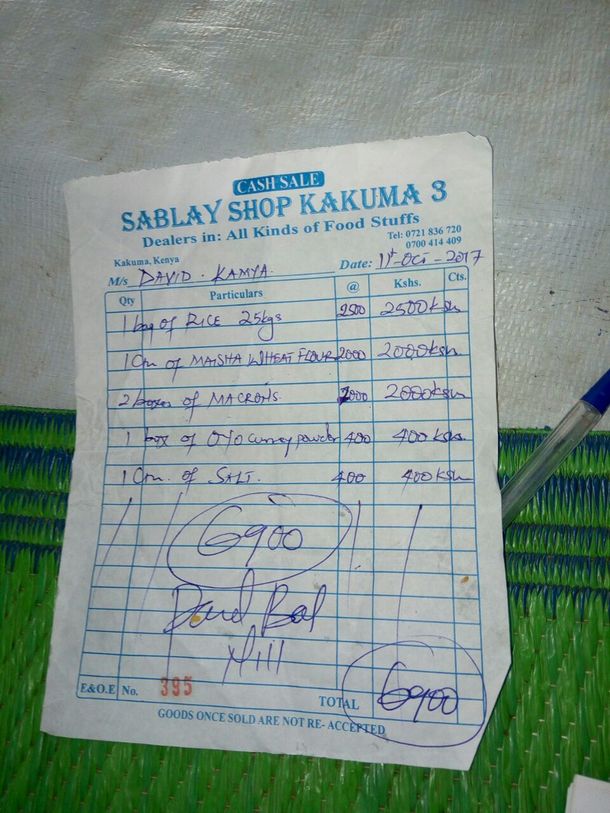 CASH SALE
SABLAY SHOP KAKUMA 3
Dealers in: All Kinds of Food Stuffs
Tel: 0721 836 720
0700 414 409
Kakuma, Kenya
M/s DAVID. KAMYA. Date: 11th-Oct-2017
Qty Particulars @ Kshs. Cts.
1 bag of RICE 25kgs 2500 2500ksh
1 Ctn of MAISHA WHEAT FLOUR 2000 2000ksh
2 boxes of MACRONS. 2000 2000ksh
1 box of curry powder 400 400ksh
1 Ctn. of SALT. 400 400ksh
6900
E&O.E No. 395
TOTAL 6900
GOODS ONCE SOLD ARE NOT RE- ACCEPTED